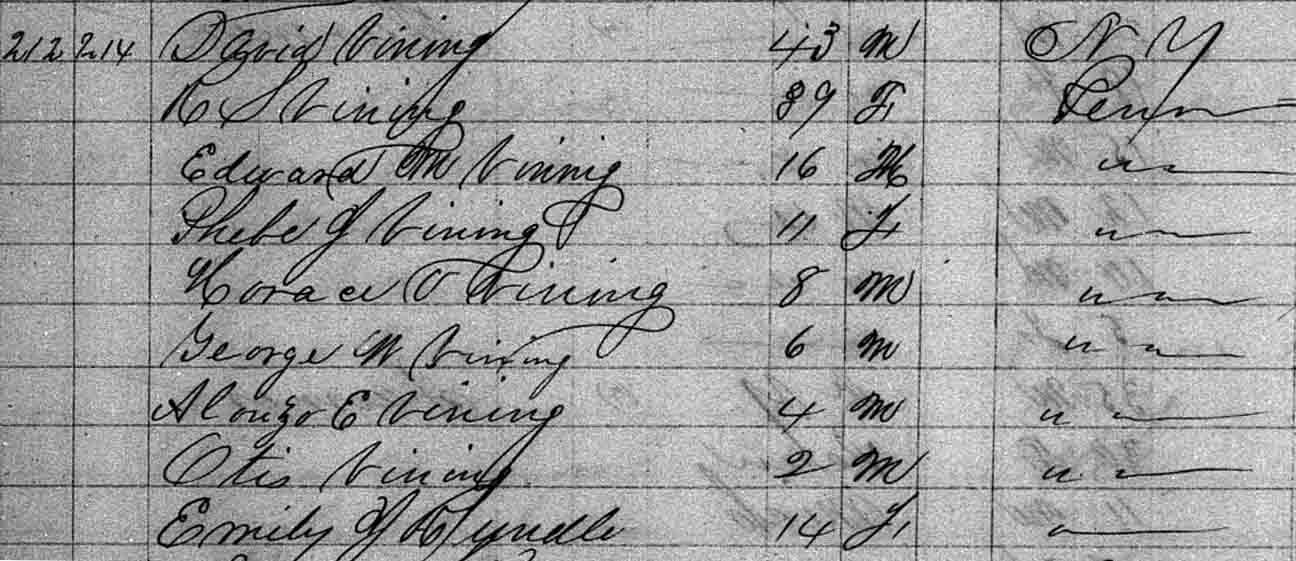 212 214 David Vining 43 M N Y
R S Vining 39 F Penn
Edward M Vining 16 M " "
Phebe J Vining 11 F " "
Horace V Vining 8 M " "
George W Vining 6 M " "
Alonzo E Vining 4 M " "
Otis Vining 2 M " "
Emily J 14 F "